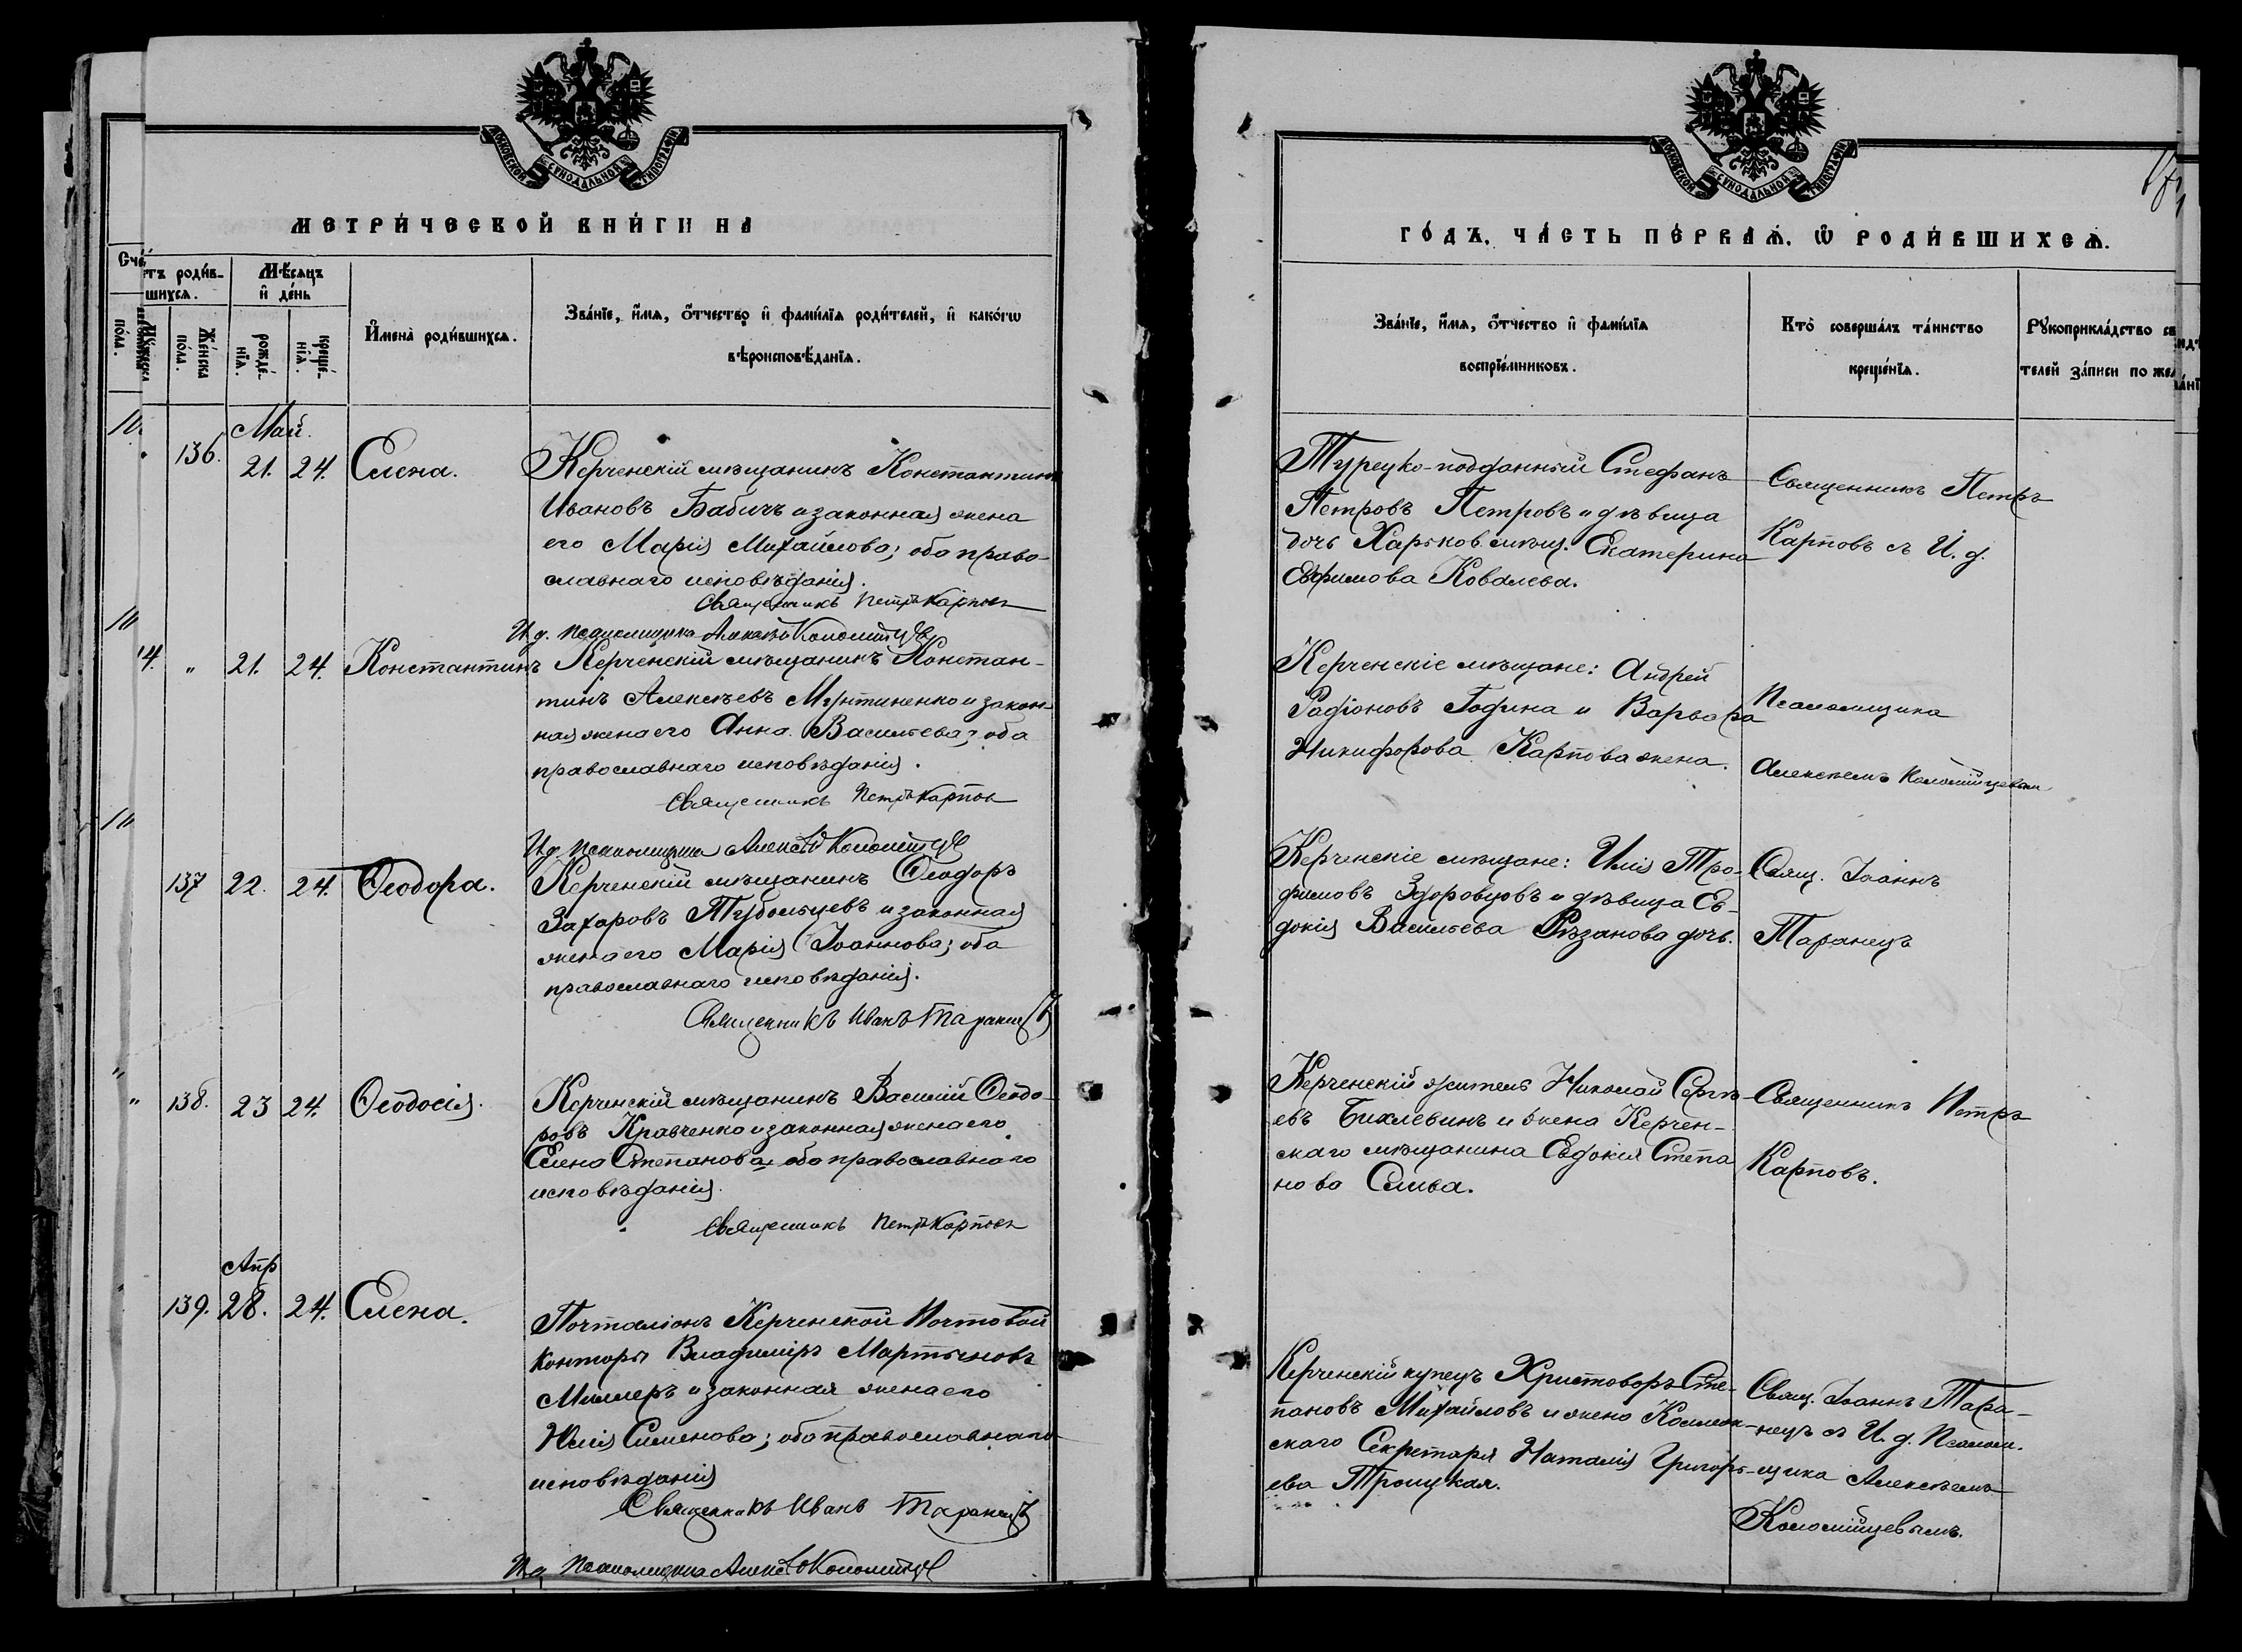 МОСКОВСКОЙ СУНОДАЛЬНОЙ ТИПОГРАФІИ
МЕТРИ́ЧЕСКОЙ КНИ́ГИ НА
Сче́тъ роди́в-
шихсѧ.
Мѣ́сѧцъ
и҆ де́нь
Мꙋ́жеска
по́ла.
Же́нска
по́ла.
рожде́-
нїѧ.
креще́-
нїѧ.
И҆мена̀ роди́вшихсѧ.
Зва́нїе, и҆́мѧ, ѻ҆́тчество и҆ фами́лїѧ роди́телей, и҆ како́гѡ
вѣроисповѣ́данїѧ.
Май.
136. 21. 24. Елена.
Керченскій мѣщанинъ Константинъ
Ивановъ Бабичъ и законная жена
его Марія Михайлова; оба право-
славнаго исповѣданія.
Священникъ Петръ Карповъ
И.д. Псаломщика Алексѣй Коломійцевъ
14. „ 21. 24. Константинъ
Керченскій мѣщанинъ Констан-
тинъ Алексѣевъ и закон-
ная жена его Анна Васильева; оба
православнаго исповѣданія.
Священникъ Петръ Карповъ
И.д. Псаломщика Алексѣй Коломійцевъ
137 22. 24. Ѳеодора.
Керченскій мѣщанинъ Ѳеодоръ
Захаровъ Тубольцевъ и законная
жена его Марія Іоаннова; оба
православнаго исповѣданія.
Священникъ Иванъ Таранецъ
„ 138. 23 24. Ѳеодосія.
Керченскій мѣщанинъ Василій Ѳеодо-
ровъ Кравченко и законная жена его
Елена Степанова, оба православнаго
исповѣданія.
Священникъ Петръ Карповъ
Апр
139. 28. 24. Елена.
Почталіонъ Керченской Почтовой
Конторы Владиміръ Мартыновъ
Миллеръ и законная жена его
Юлія Сименова; оба православнаго
исповѣданія
Священникъ Иванъ Таранецъ
И.д. Псаломщика Алексѣй Коломійцевъ
МОСКОВСКОЙ СУНОДАЛЬНОЙ ТИПОГРАФІИ
ГО́ДЪ. ЧА́СТЬ ПЕ́РВАѦ, Ѡ҆ РОДИ́ВШИХСѦ.
Зва́нїе, и҆́мѧ, ѻ҆́тчество и҆ фами́лїѧ
воспрїе́мниковъ.
Кто̀ соверша́лъ та́инство
креще́нїѧ.
Рꙋкоприкла́дство свидѣ-
телей за́писи по жела́нї
Турецко-подданный Стефанъ
Петровъ Петровъ и дѣвица
дочь Харьков. мѣщ. Екатерина
Евфимова Ковалева.
Священникъ Петръ
Карповъ съ И. д.
Керченскіе мѣщане: Андрей
Радіоновъ Година и Варвара
Никифорова Карпова жена.
Псаломщика
Алексѣемъ Коломійцевымъ
Керченскіе мѣщане: Илія Тро-
фимовъ Здоровцовъ и дѣвица Ев-
докія Васильева Рѣзанова дочь.
Свящ. Іоаннъ
Таранецъ
Керченскій житель Николай Сергѣ-
евъ Бихлевинъ и жена Керчен-
скаго мѣщанина Евдокія Степа
нова Слива.
Священникъ Петръ
Карповъ.
Керченскій купецъ Христофоръ Сте-
пановъ Михайловъ и жена Коллеж-
скаго Секретаря Наталія Григорь-
ева Троицкая.
Свящ. Іоаннъ Тара-
нецъ съ И. д. Псалом-
щика Алексѣемъ
Коломійцевымъ.